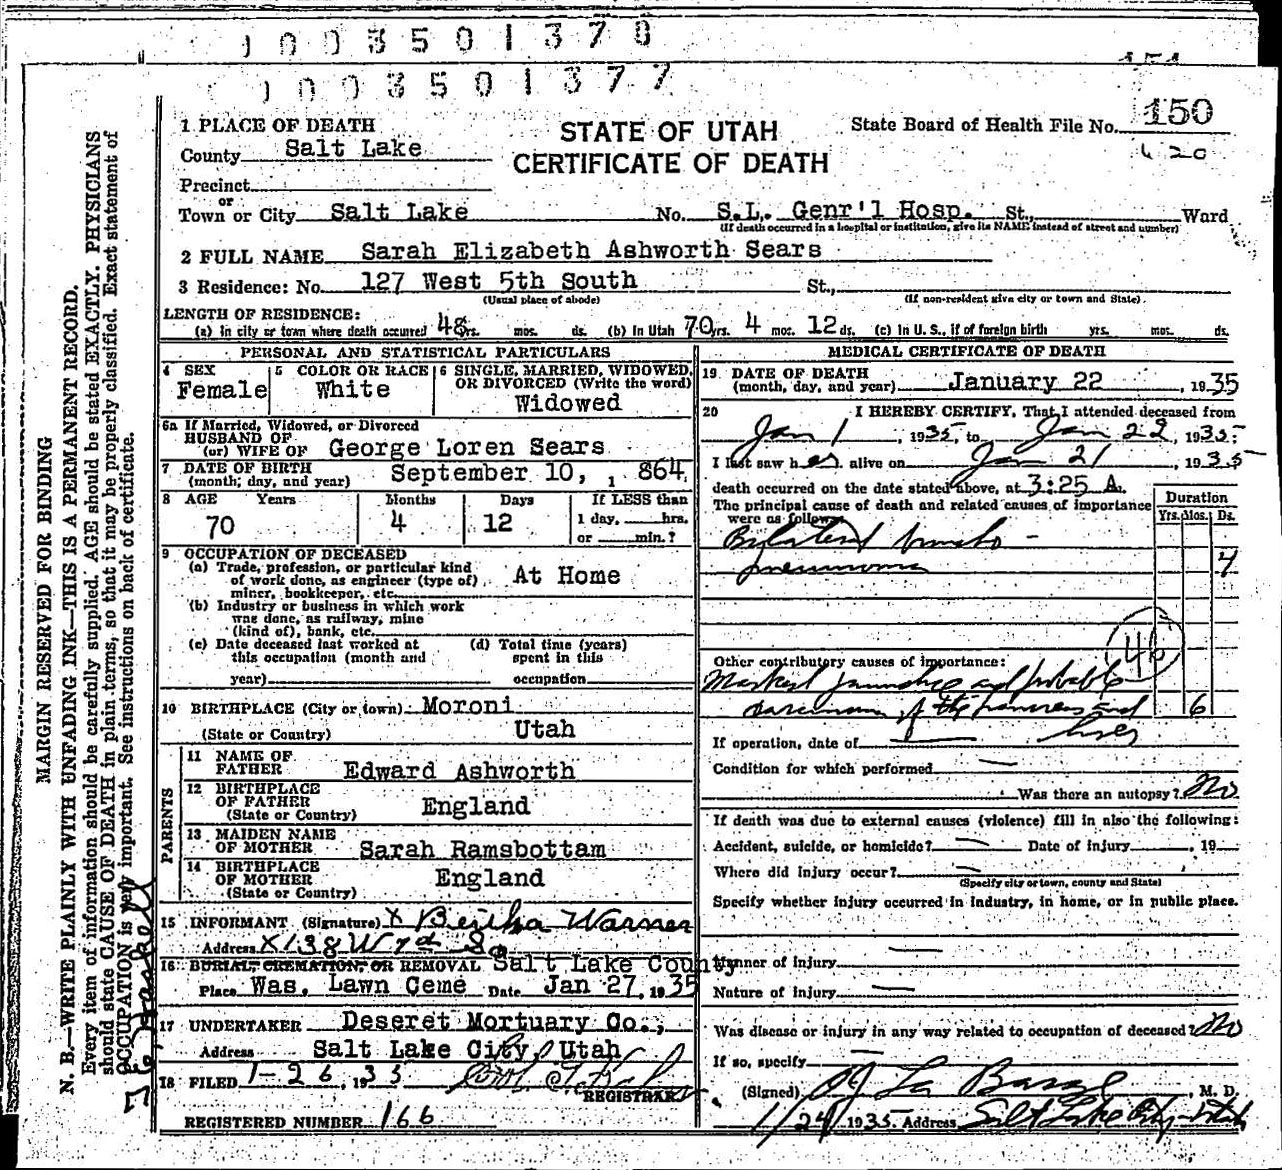 0003501378
0003501377
150
STATE OF UTAH
CERTIFICATE OF DEATH
State Board of Health File No. 150
1 PLACE OF DEATH
County Salt Lake
Precinct
or
Town or City Salt Lake No. S.L. Genr'l Hosp. St., Ward
(If death occurred in a hospital or institution, give its NAME instead of street and number)
2 FULL NAME Sarah Elizabeth Ashworth Sears
3 Residence: No. 127 West 5th South St.,
(Usual place of abode) (If non-resident give city or town and State)
LENGTH OF RESIDENCE:
(a) In city or town where death occurred 48 yrs. mos. ds. (b) In Utah 70 yrs. 4 mos. 12 ds. (c) In U. S., if of foreign birth yrs. mos. ds.
PERSONAL AND STATISTICAL PARTICULARS
4 SEX Female
5 COLOR OR RACE White
6 SINGLE, MARRIED, WIDOWED, OR DIVORCED (Write the word) Widowed
6a If Married, Widowed, or Divorced
HUSBAND OF
(or) WIFE OF George Loren Sears
7 DATE OF BIRTH
(month, day, and year) September 10, 1864
8 AGE Years Months Days If LESS than
70 4 12 1 day, hrs.
or min.?
9 OCCUPATION OF DECEASED
(a) Trade, profession, or particular kind
of work done, as engineer (type of) At Home
miner, bookkeeper, etc.
(b) Industry or business in which work
was done, as railway, mine
(kind of), bank, etc.
(c) Date deceased last worked at (d) Total time (years)
this occupation (month and spent in this
year) occupation
10 BIRTHPLACE (City or town) Moroni
(State or Country) Utah
PARENTS
11 NAME OF
FATHER Edward Ashworth
12 BIRTHPLACE
OF FATHER England
(State or Country)
13 MAIDEN NAME
OF MOTHER Sarah Ramsbottam
14 BIRTHPLACE
OF MOTHER England
(State or Country)
15 INFORMANT (Signature) x Bertha Warner
Address x 138 W So
16 BURIAL, CREMATION, OR REMOVAL Salt Lake County
Place Was. Lawn Ceme Date Jan 27, 1935
17 UNDERTAKER Deseret Mortuary Co.,
Address Salt Lake City, Utah
18 FILED 1-26, 1935
REGISTRAR
REGISTERED NUMBER 166
MEDICAL CERTIFICATE OF DEATH
19 DATE OF DEATH
(month, day, and year) January 22, 1935
20 I HEREBY CERTIFY, That I attended deceased from
Jan 1, 1935, to Jan 22, 1935.
I last saw her alive on Jan 21, 1935
death occurred on the date stated above, at 3:25 A.
The principal cause of death and related causes of importance
were as follows:
Duration
Yrs. Mos. Ds.
Bilateral broncho-
pneumonia 4
46
Other contributory causes of importance:
Marked jaundice and probable
carcinoma of the pancreas and 6
liver
If operation, date of
Condition for which performed
Was there an autopsy? No
If death was due to external causes (violence) fill in also the following:
Accident, suicide, or homicide? Date of injury , 19
Where did injury occur?
(Specify city or town, county and State)
Specify whether injury occurred in industry, in home, or in public place.
Manner of injury
Nature of injury
Was disease or injury in any way related to occupation of deceased? No
If so, specify
(Signed) La Barge, M. D.
1/24/1935 Address Salt Lake City Utah
MARGIN RESERVED FOR BINDING
N. B.—WRITE PLAINLY WITH UNFADING INK—THIS IS A PERMANENT RECORD.
Every item of information should be carefully supplied. AGE should be stated EXACTLY. PHYSICIANS
should state CAUSE OF DEATH in plain terms, so that it may be properly classified. Exact statement of
OCCUPATION is very important. See instructions on back of certificate.